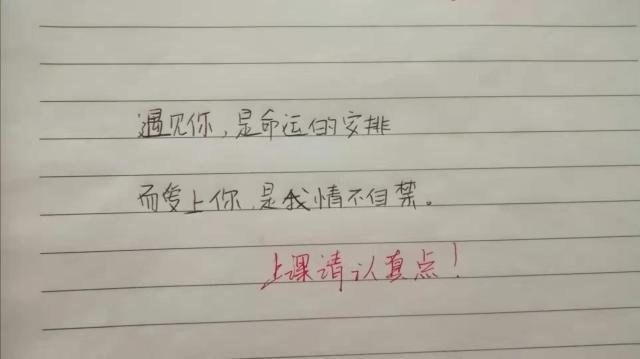 遇见你，是命运的安排
而爱上你，是我情不自禁。
上课请认真点！